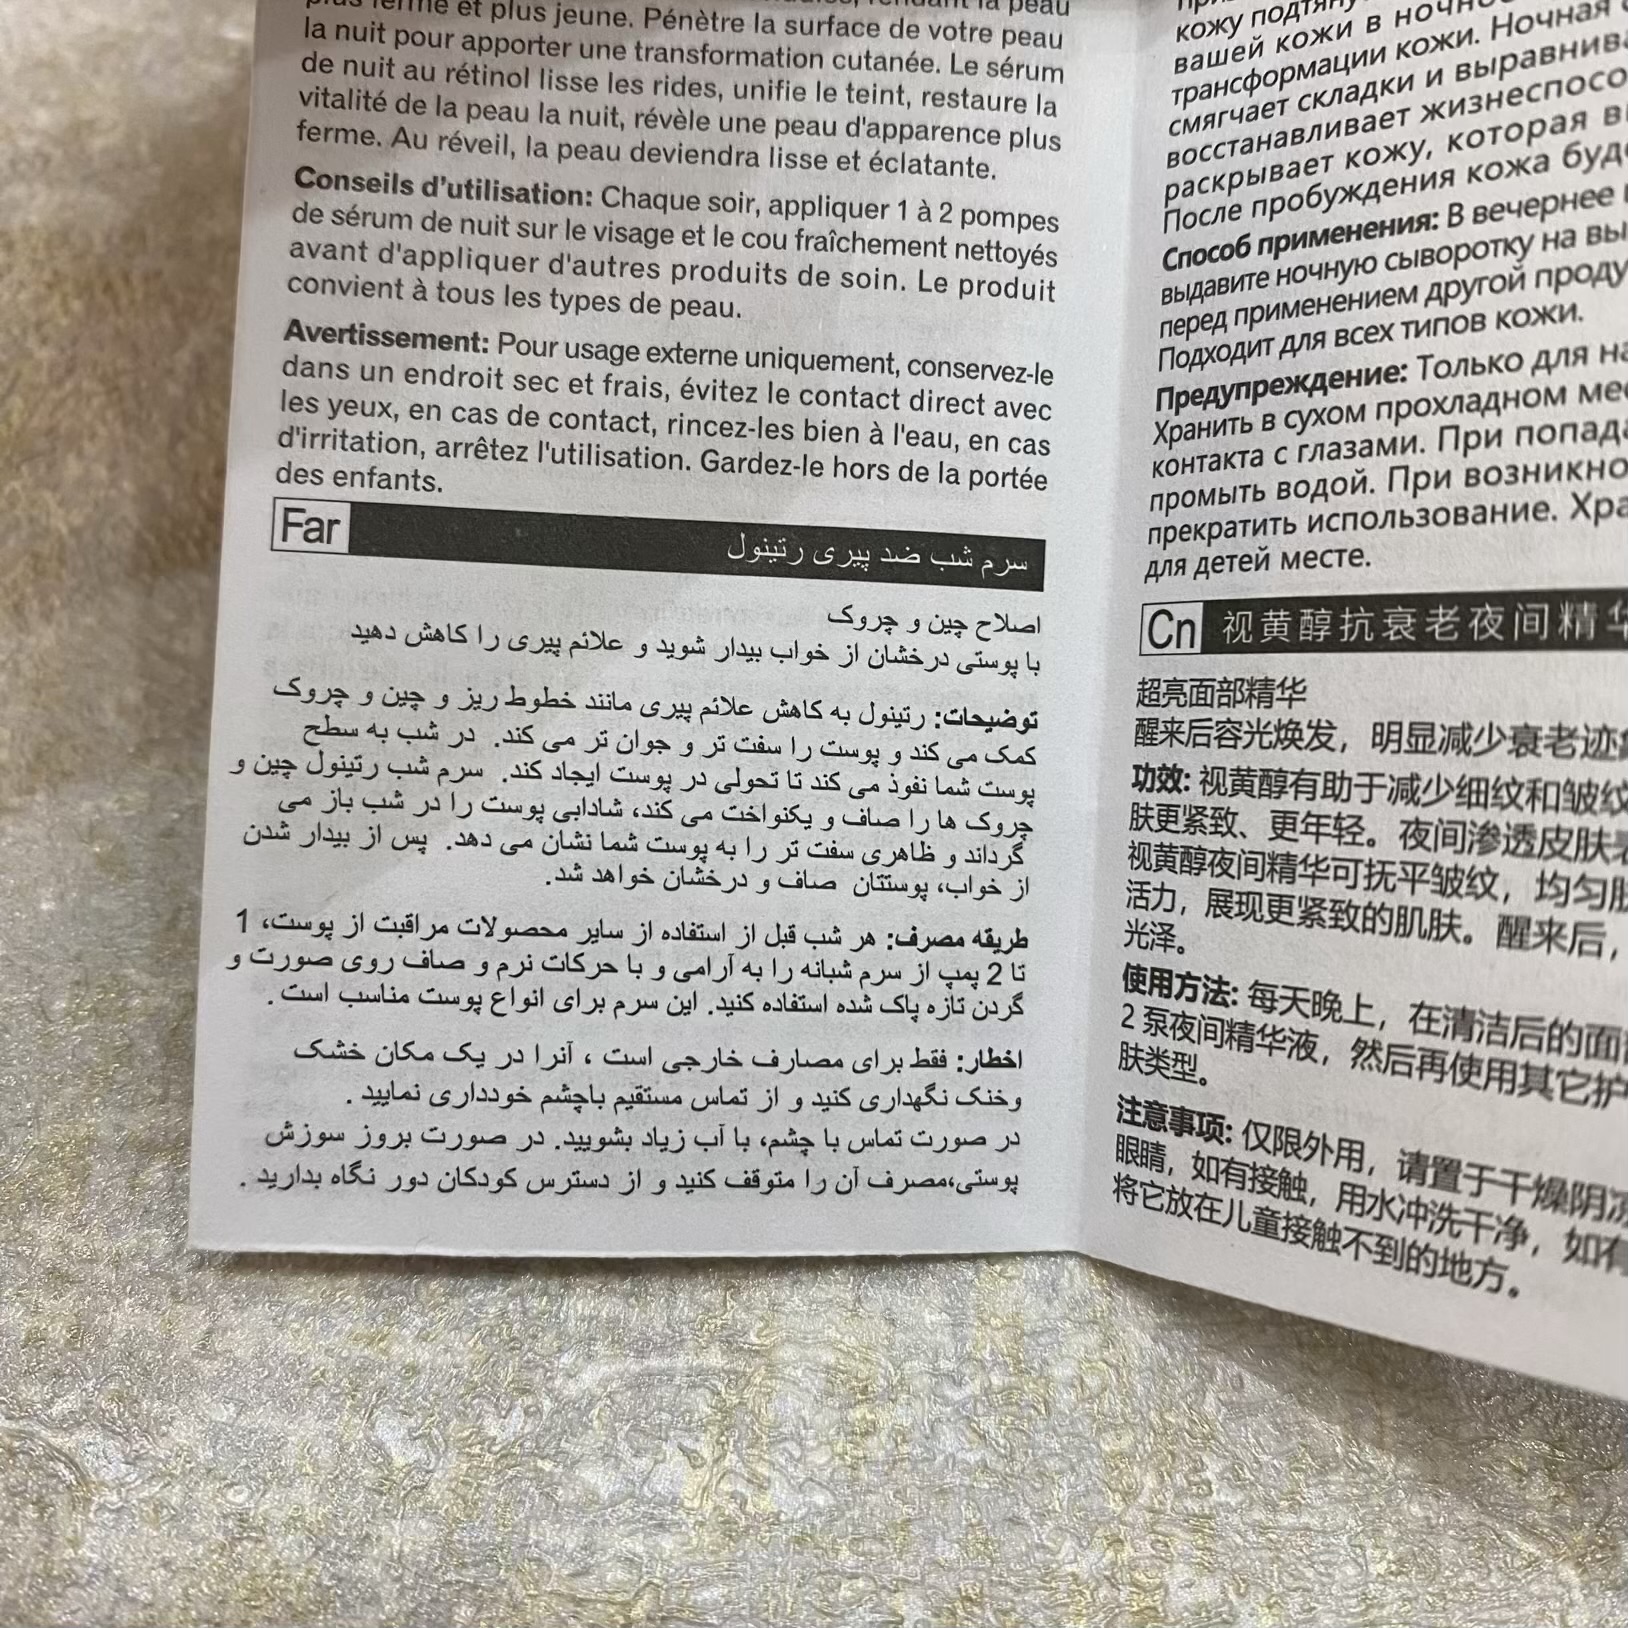 et plus jeune. Pénètre la surface de votre peau
la nuit pour apporter une transformation cutanée. Le sérum
de nuit au rétinol lisse les rides, unifie le teint, restaure la
vitalité de la peau la nuit, révèle une peau d'apparence plus
ferme. Au réveil, la peau deviendra lisse et éclatante.
Conseils d'utilisation: Chaque soir, appliquer 1 à 2 pompes
de sérum de nuit sur le visage et le cou fraîchement nettoyés
avant d'appliquer d'autres produits de soin. Le produit
convient à tous les types de peau.
Avertissement: Pour usage externe uniquement, conservez-le
dans un endroit sec et frais, évitez le contact direct avec
les yeux, en cas de contact, rincez-les bien à l'eau, en cas
d'irritation, arrêtez l'utilisation. Gardez-le hors de la portée
des enfants.
Far
سرم شب ضد پیری رتینول
اصلاح چین و چروک
با پوستی درخشان از خواب بیدار شوید و علائم پیری را کاهش دهید
توضیحات: رتینول به کاهش علائم پیری مانند خطوط ریز و چین و چروک
کمک می کند و پوست را سفت تر و جوان تر می کند. در شب به سطح
پوست شما نفوذ می کند تا تحولی در پوست ایجاد کند. سرم شب رتینول چین و
چروک ها را صاف و یکنواخت می کند، شادابی پوست را در شب باز می
گرداند و ظاهری سفت تر را به پوست شما نشان می دهد. پس از بیدار شدن
از خواب، پوستتان صاف و درخشان خواهد شد.
طریقه مصرف: هر شب قبل از استفاده از سایر محصولات مراقبت از پوست، 1
تا 2 پمپ از سرم شبانه را به آرامی و با حرکات نرم و صاف روی صورت و
گردن تازه پاک شده استفاده کنید. این سرم برای انواع پوست مناسب است .
اخطار: فقط برای مصارف خارجی است ، آنرا در یک مکان خشک
وخنک نگهداری کنید و از تماس مستقیم باچشم خودداری نمایید .
در صورت تماس با چشم، با آب زیاد بشویید. در صورت بروز سوزش
پوستی،مصرف آن را متوقف کنید و از دسترس کودکان دور نگاه بدارید .
кожу
вашей кожи в
трансформации кожи. Ночная
смягчает складки и
восстанавливает
раскрывает кожу, которая
После пробуждения кожа
Способ применения: В вечернее
выдавите ночную сыворотку на
перед применением другой
Подходит для всех типов кожи.
Предупреждение: Только для
Хранить в сухом прохладном
контакта с глазами. При
промыть водой. При
прекратить использование.
для детей месте.
Cn
视黄醇抗衰老夜间精华
超亮面部精华
醒来后容光焕发，明显减少衰老迹
功效: 视黄醇有助于减少细纹和皱纹
肤更紧致、更年轻。夜间渗透皮肤
视黄醇夜间精华可抚平皱纹，均匀肤
活力，展现更紧致的肌肤。醒来后，
光泽。
使用方法: 每天晚上，在清洁后的面
2 泵夜间精华液，然后再使用其它护
肤类型。
注意事项: 仅限外用，请置于干燥阴凉
眼睛，如有接触，用水冲洗干净，如有
将它放在儿童接触不到的地方。